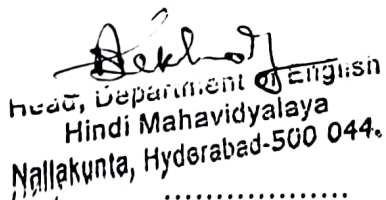 Head, Department of English
Hindi Mahavidyalaya
Nallakunta, Hyderabad-500 044.
..................